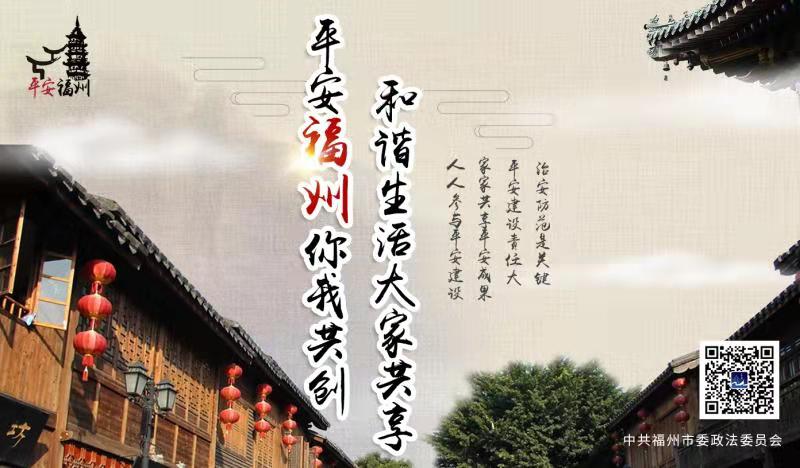 平安福州
平安福州你我共创
和谐生活大家共享
治安防范是关键
平安建设责任大
家家共享平安成果
人人参与平安建设
坊
中共福州市委政法委员会